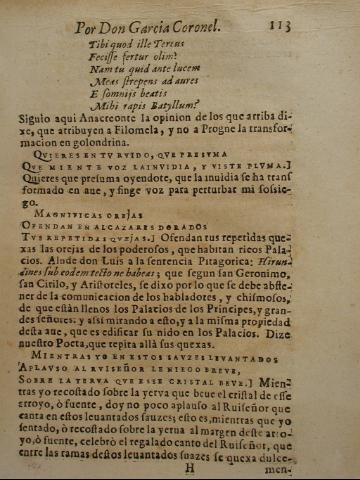 Por Don Garcia Coronel. 113
Tibi quod ille Tereus
Fecisse fertur olim?
Nam tu quid ante lucem
Meas strepens ad aures
E somnijs beatis
Mihi rapis Batyllum?
Siguio aqui Anacreonte la opinion de los que arriba di-
xe, que atribuyen a Filomela, y no a Progne la transfor-
macion en golondrina.
QVIERES EN TV RVIDO, QVE PRESVMA
QVE MIENTE VOZ LA INVIDIA, Y VISTE PLVMA.]
Quieres que presuma oyendote, que la inuidia se ha trans
formado en aue, y finge voz para perturbar mi sossie-
go.
MAGNIFICAS OREJAS
OFENDAN EN ALCAZARES DORADOS
TVS REPETIDAS QVEJAS.] Ofendan tus repetidas que-
xas las orejas de los poderosos, que habitan ricos Pala-
cios. Alude don Luis a la sentencia Pitagorica: Hirun-
dines sub eodem tecto ne habeas; que segun san Geronimo,
san Cirilo, y Aristoteles, se dixo por lo que se debe abste-
ner de la comunicacion de los habladores, y chismosos,
de que estàn llenos los Palacios de los Principes, y gran-
des señores: y assi mirando a esto, y a la misma propiedad
desta aue, que es edificar su nido en los Palacios. Dize
nuestro Poeta, que repita allà sus quexas.
MIENTRAS YO EN ESTOS SAVZES LEVANTADOS
APLAVSO AL RVISEÑOR LE NIEGO BREVE,
SOBRE LA YERVA QVE ESSE CRISTAL BEVE.] Mien-
tras yo recostado sobre la yerva que beue el cristal de esse
arroyo, ò fuente, doy no poco aplauso al Ruiseñor que
canta en estos leuantados sauzes; esto es, mientras que yo
sentado, ò recostado sobre la yerva al margen deste arro-
yo, ò fuente, celebrò el regalado canto del Ruiseñor, que
entre las ramas destos leuantados sauzes se quexa dulce-
H men-